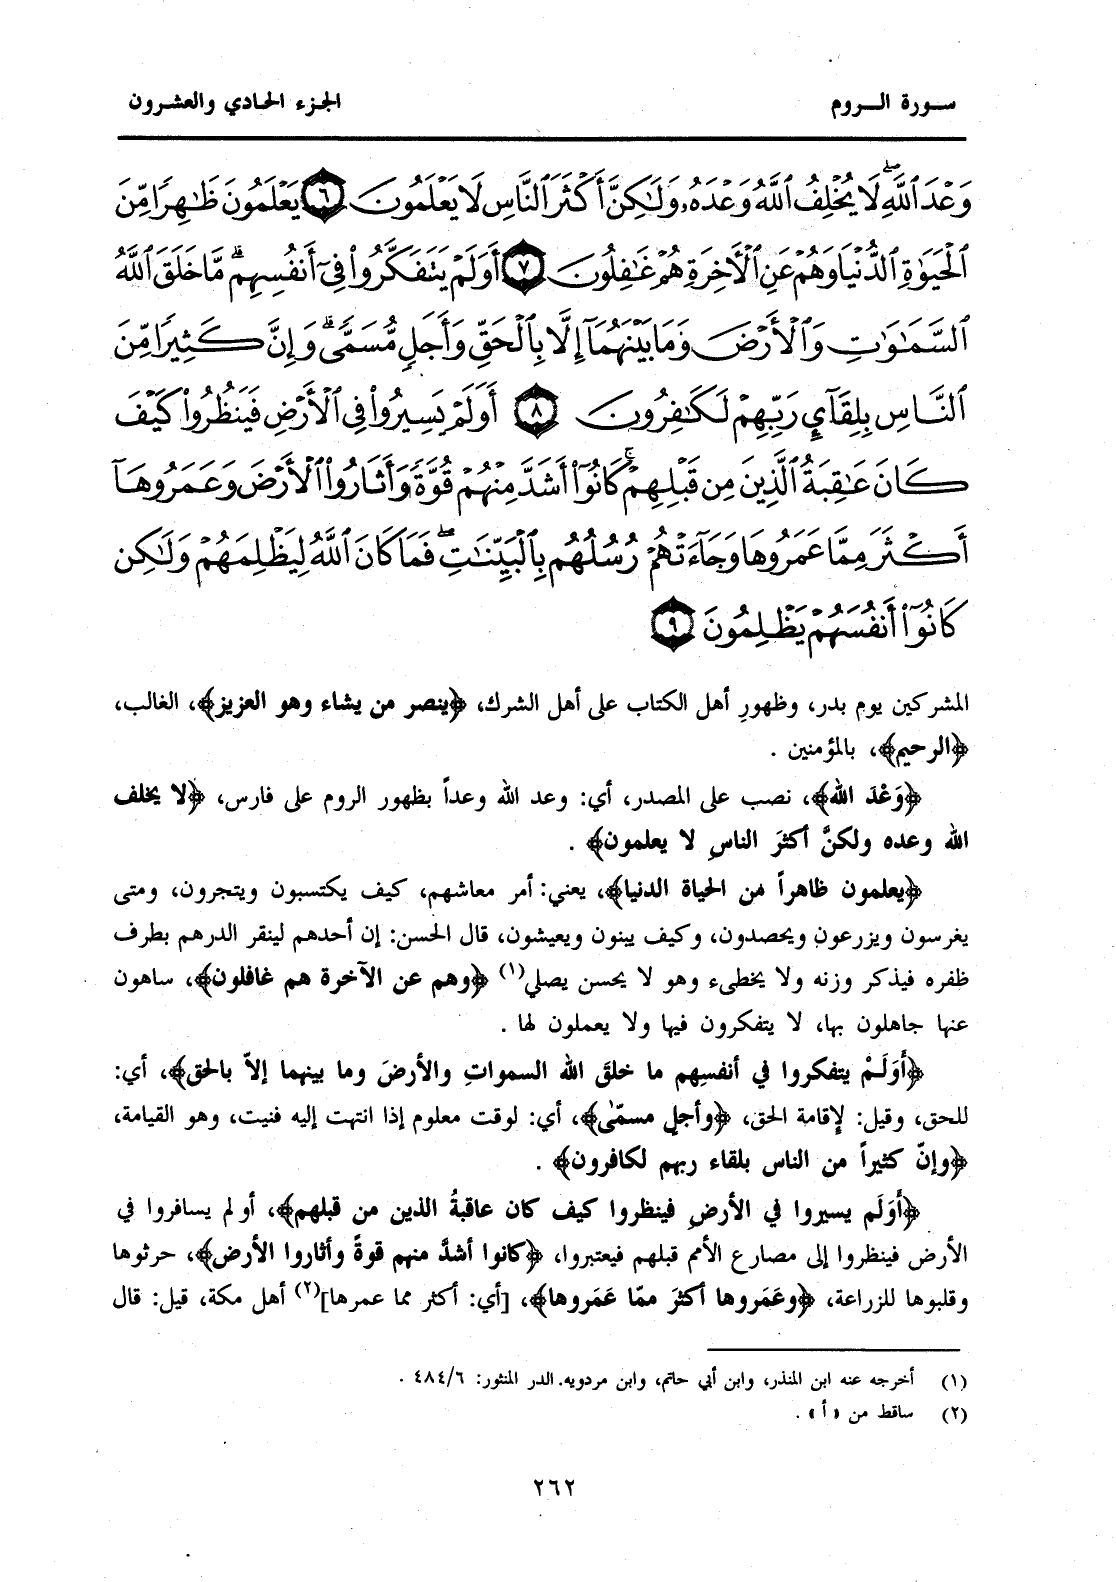 سورة الروم
الجزء الحادي والعشرون
وَعْدَ ٱللَّهِ ۖ لَا يُخْلِفُ ٱللَّهُ وَعْدَهُۥ وَلَٰكِنَّ أَكْثَرَ ٱلنَّاسِ لَا يَعْلَمُونَ ٦ يَعْلَمُونَ ظَٰهِرًا مِّنَ
ٱلْحَيَوٰةِ ٱلدُّنْيَا وَهُمْ عَنِ ٱلْأَخِرَةِ هُمْ غَٰفِلُونَ ٧ أَوَلَمْ يَتَفَكَّرُوا۟ فِىٓ أَنفُسِهِم ۗ مَّا خَلَقَ ٱللَّهُ
ٱلسَّمَٰوَٰتِ وَٱلْأَرْضَ وَمَا بَيْنَهُمَآ إِلَّا بِٱلْحَقِّ وَأَجَلٍ مُّسَمًّى ۗ وَإِنَّ كَثِيرًا مِّنَ
ٱلنَّاسِ بِلِقَآئِ رَبِّهِمْ لَكَٰفِرُونَ ٨ أَوَلَمْ يَسِيرُوا۟ فِى ٱلْأَرْضِ فَيَنظُرُوا۟ كَيْفَ
كَانَ عَٰقِبَةُ ٱلَّذِينَ مِن قَبْلِهِمْ ۚ كَانُوٓا۟ أَشَدَّ مِنْهُمْ قُوَّةً وَأَثَارُوا۟ ٱلْأَرْضَ وَعَمَرُوهَآ
أَكْثَرَ مِمَّا عَمَرُوهَا وَجَآءَتْهُمْ رُسُلُهُم بِٱلْبَيِّنَٰتِ ۖ فَمَا كَانَ ٱللَّهُ لِيَظْلِمَهُمْ وَلَٰكِن
كَانُوٓا۟ أَنفُسَهُمْ يَظْلِمُونَ ٩
المشركين يوم بدر، وظهورِ أهل الكتاب على أهل الشرك، ﴿ينصر من يشاء وهو العزيز﴾، الغالب،
﴿الرحيم﴾، بالمؤمنين .
﴿وَعْدَ الله﴾، نصب على المصدر، أي: وعد الله وعداً بظهور الروم على فارس، ﴿لا يخلف
الله وعده ولكنَّ أكثرَ الناسِ لا يعلمون﴾ .
﴿يعلمون ظاهراً من الحياة الدنيا﴾، يعني: أمر معاشهم، كيف يكتسبون ويتجرون، ومتى
يغرسون ويزرعون ويحصدون، وكيف يبنون ويعيشون، قال الحسن: إن أحدهم لينقر الدرهم بطرف
ظفره فيذكر وزنه ولا يخطىء وهو لا يحسن يصلي(١) ﴿وهم عن الآخرة هم غافلون﴾، ساهون
عنها جاهلون بها، لا يتفكرون فيها ولا يعملون لها .
﴿أَوَلَمْ يتفكروا في أنفسِهم ما خلقَ الله السمواتِ والأرضَ وما بينهما إلاّ بالحق﴾، أي:
للحق، وقيل: لإقامة الحق، ﴿وأجلٍ مسمّىٰ﴾، أي: لوقت معلوم إذا انتهت إليه فنيت، وهو القيامة،
﴿وإنّ كثيراً من الناس بلقاء ربهم لكافرون﴾ .
﴿أَوَلَم يسيروا في الأرضِ فينظروا كيف كان عاقبةُ الذين من قبلهم﴾، أو لم يسافروا في
الأرض فينظروا إلى مصارع الأمم قبلهم فيعتبروا، ﴿كانوا أشدَّ منهم قوةً وأثاروا الأرض﴾، حرثوها
وقلبوها للزراعة، ﴿وعَمَروها أكثرَ ممّا عَمَروها﴾، [أي: أكثر مما عمرها](٢) أهل مكة، قيل: قال
(١) أخرجه عنه ابن المنذر، وابن أبي حاتم، وابن مردويه. الدر المنثور: ٤٨٤/٦ .
(٢) ساقط من «أ» .
٢٦٢